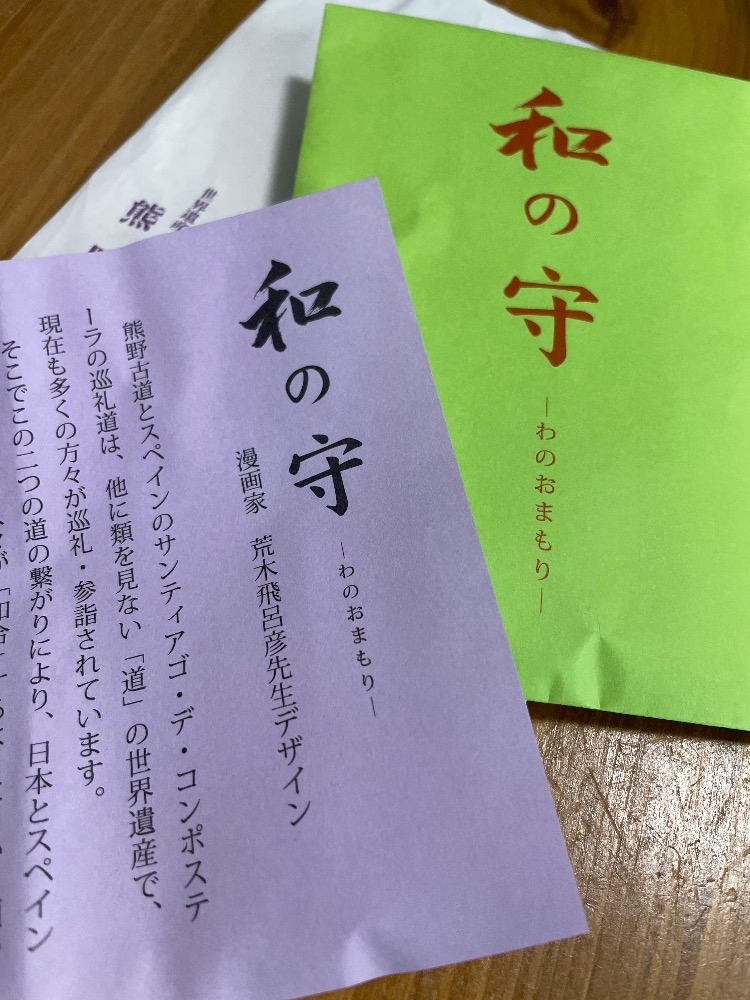 和の守
―わのおまもり―
和の守
―わのおまもり―
漫画家　荒木飛呂彦先生デザイン
熊野古道とスペインのサンティアゴ・デ・コンポステ
ーラの巡礼道は、他に類を見ない「道」の世界遺産で、
現在も多くの方々が巡礼・参詣されています。
そこでこの二つの道の繋がりにより、日本とスペイン
世界遺産
熊